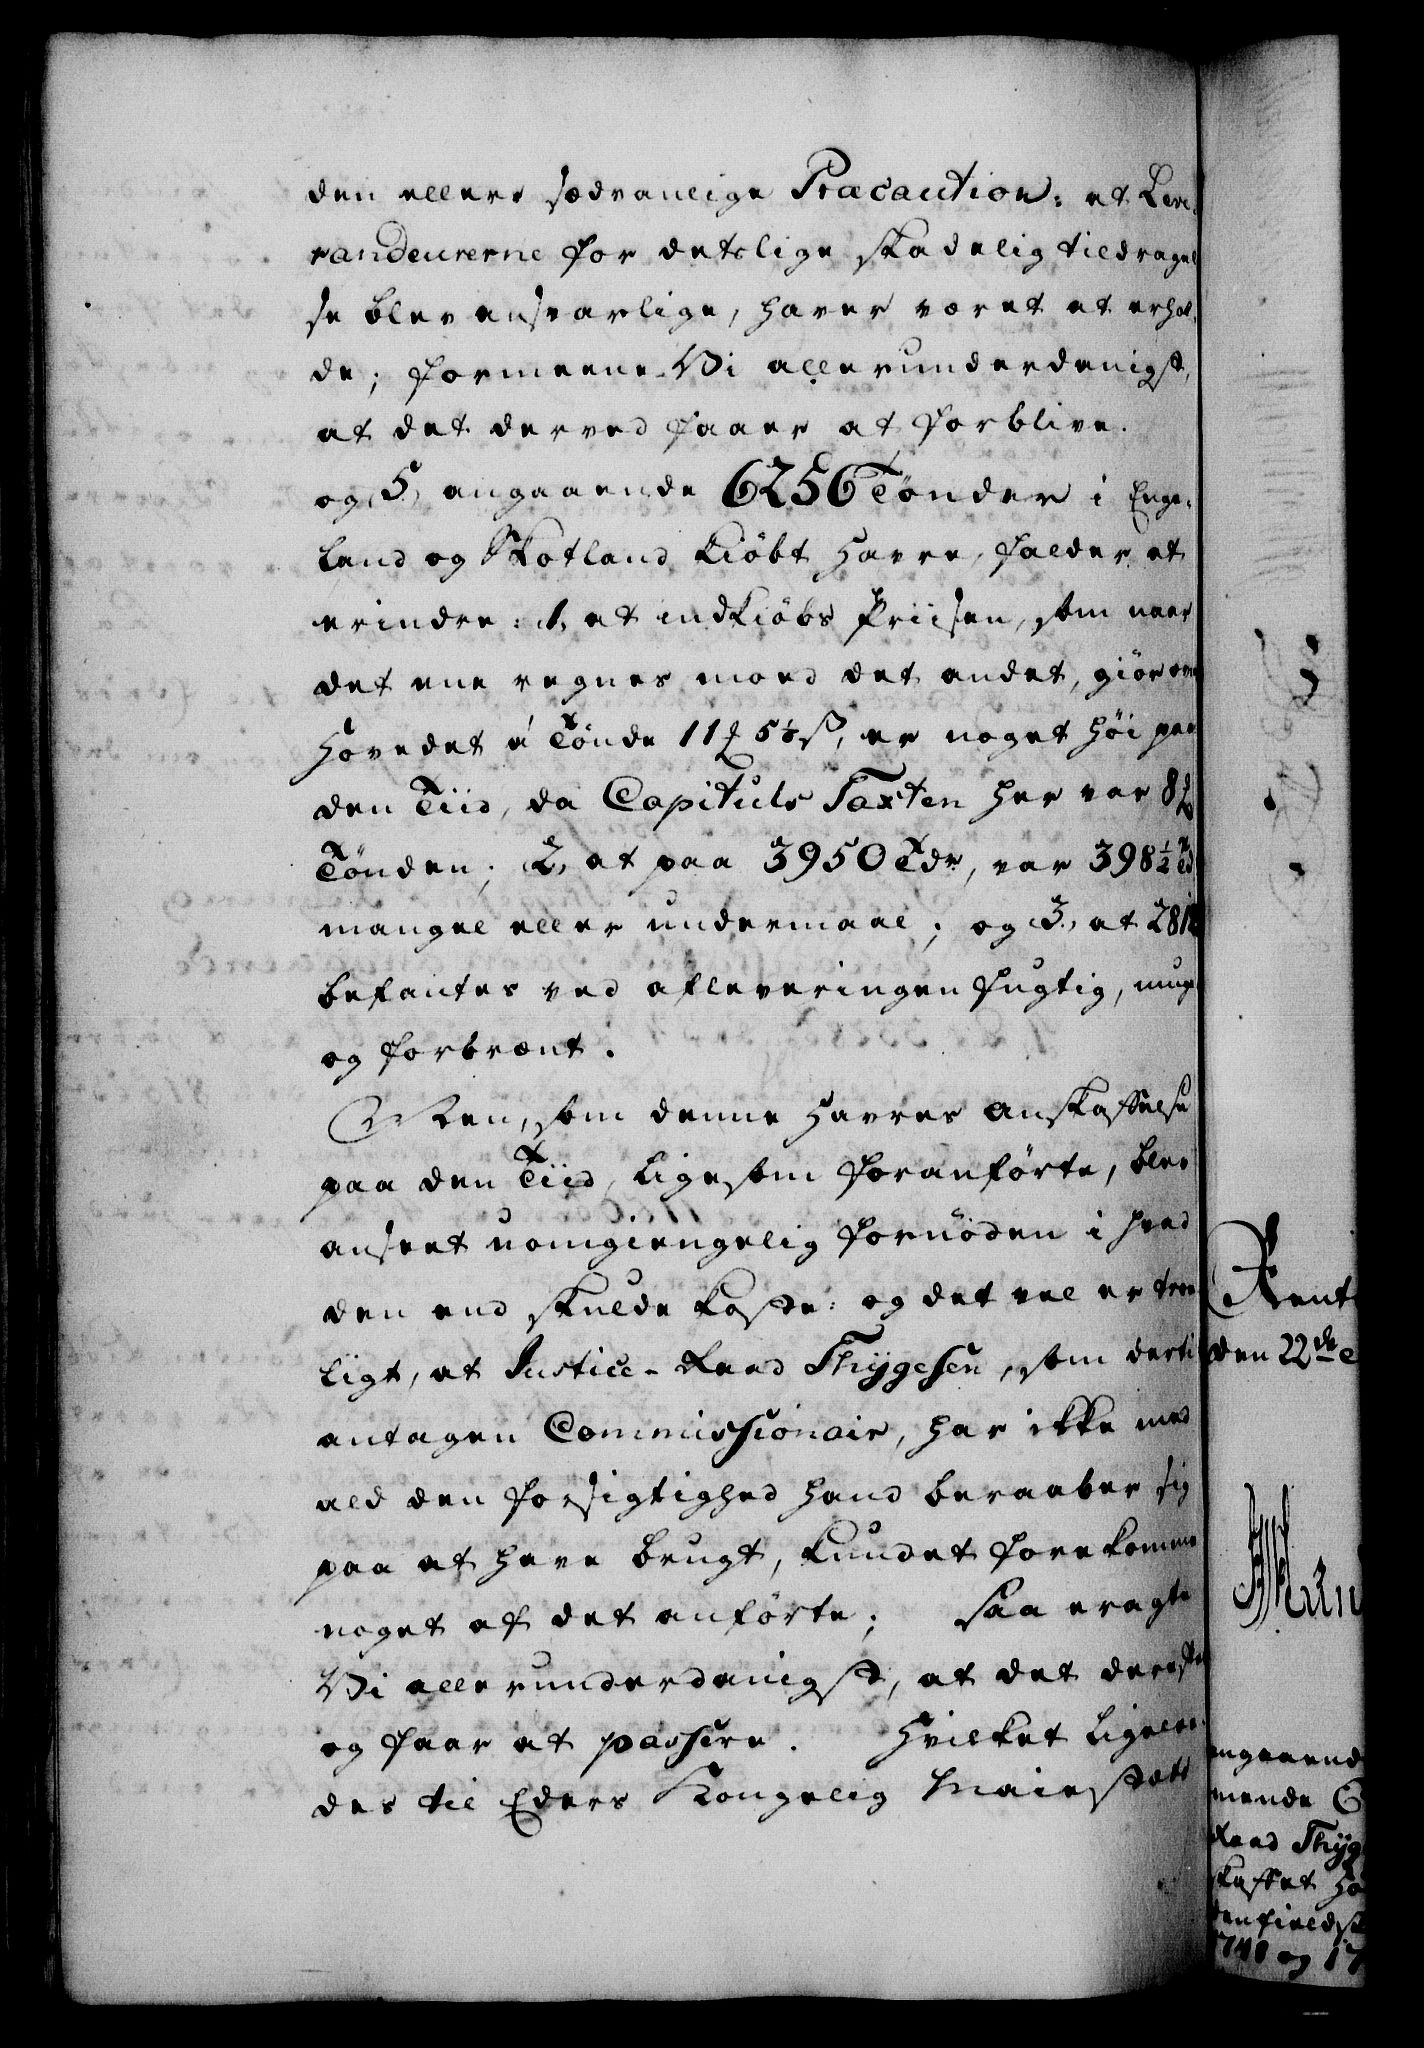 den ellers sædvanlige Præcaution: at Leve-
randeurerne for detslige skadelig tildragel
se blev ansvarlige, haver voret at erhol-
de; formeene Vi allerunderdanigst,
at det derved faaer at forblive.
og 5, angaaende 6256 Tönder i Enge-
land og Skotland kiöbt Havre, falder at
erindre: 1, at indkiöbs Priisen, som naar
det ene regnes moed det andet, giör over
Hovedet á Tönde 11 5 ß, er noget höi paa
den Tiid, da Capituls Taxten her var 8
Tönden; 2, at paa 3950 Tdr, var 398½ Td
mangel eller undermaal; og 3, at 281
befantes ved afleveringen fugtig, muge
og forbrænt.
Men, som denne Havres Anskaffelse
paa den Tiid, ligesom foranförte, blev
anseet uomgiengelig fornöden i hvad
den end skulde koste: og det vel er troe
ligt, at Justice-Raad Thygesen, som dertil
antagen Commissionair, har ikke med
ald den forsigtighed hand beraaber sig
paa at have brugt, kundet forekomme
noget af det anförte; Saa eragte
Vi allerunderdanigst, at det derefter
og faar at passere. Hvilket ligelee-
des til Eders Kongelig Maiestætt
Rent
den 22de
angaaend
mende
Raad Thyg
skaffet Ha
denfields
1741 og 17